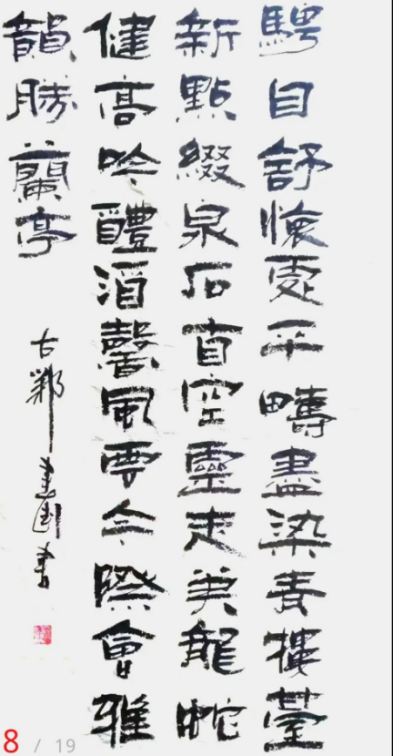 騁目舒懷處平疇盡染青樓臺
新點綴泉石自空靈走筆龍蛇
健高吟醴酒馨風雲今際會雅
韻勝蘭亭
古 建國書
8 / 19